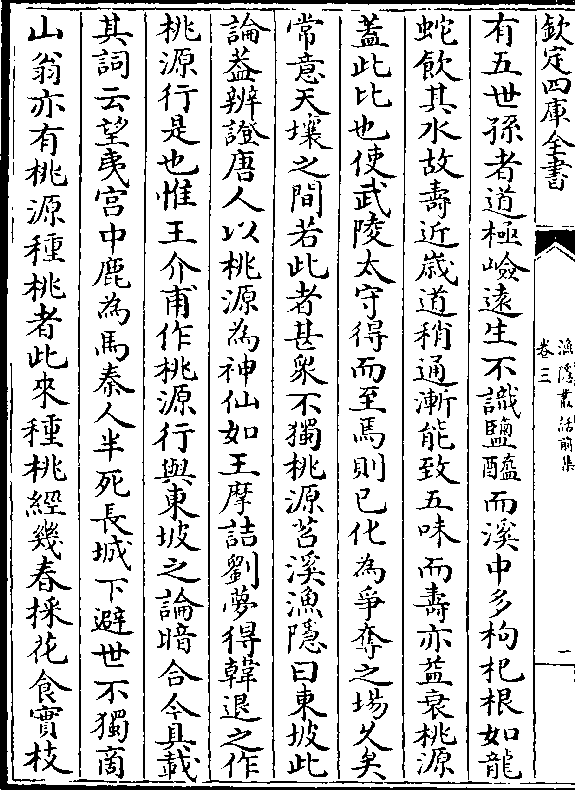 欽定四庫全書
漁隱叢話前集
卷三
一
有五世孫者道極嶮遠生不識鹽醯而溪中多枸杞根如龍
蛇飲其水故壽近歲道稍通漸能致五味而壽亦益衰桃源
蓋此比也使武陵太守得而至焉則已化為爭奪之場久矣
常意天壤之間若此者甚衆不獨桃源苕溪漁隱曰東坡此
論葢辨證唐人以桃源為神仙如王摩詰劉夢得韓退之作
桃源行是也惟王介甫作桃源行與東坡之論暗合今具載
其詞云望夷宮中鹿為馬秦人半死長城下避世不獨商
山翁亦有桃源種桃者此來種桃經幾春採花食實枝